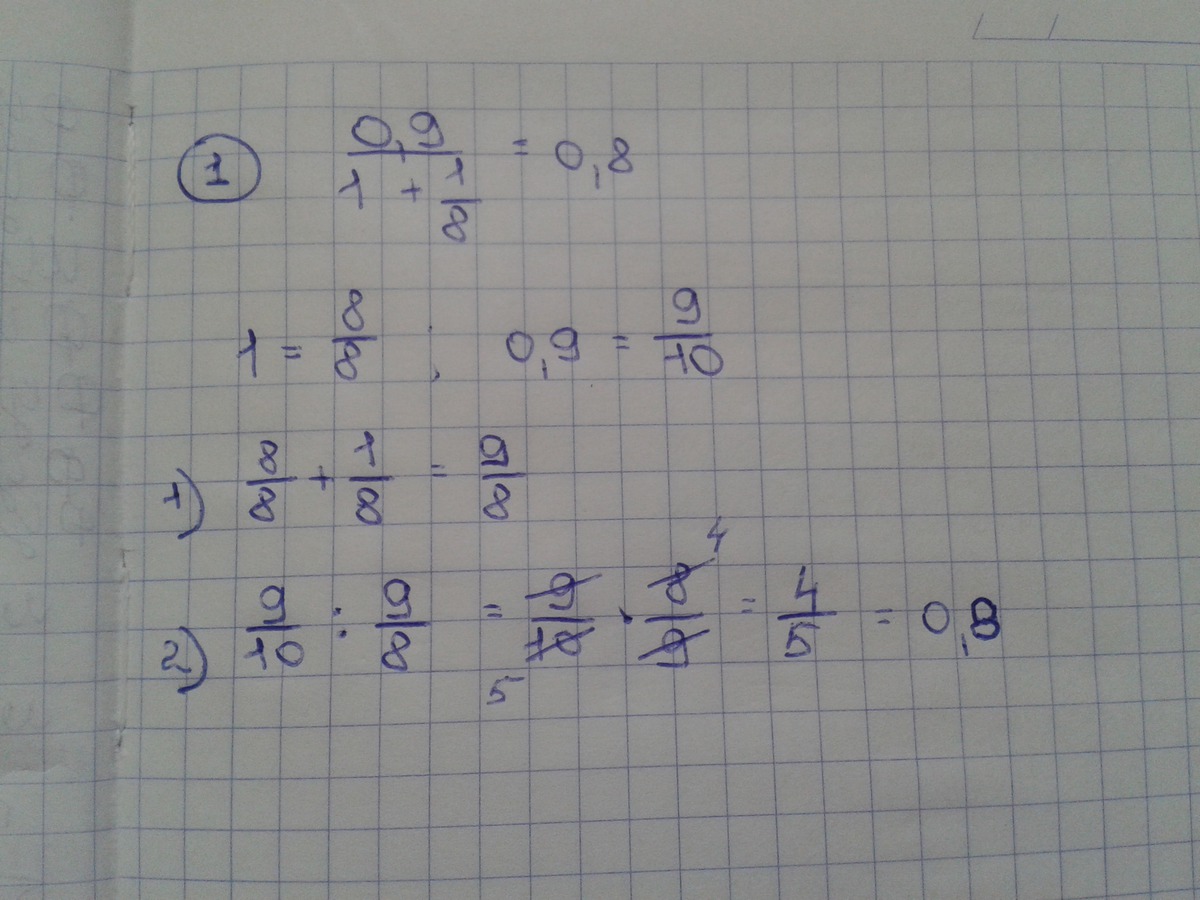 ① 0,9/(1 + 1/8) = 0,8
1 = 8/8 ; 0,9 = 9/10
1) 8/8 + 1/8 = 9/8
2) 9/10 : 9/8 = 9/10 · 8/9 = 4/5 = 0,8
5 4